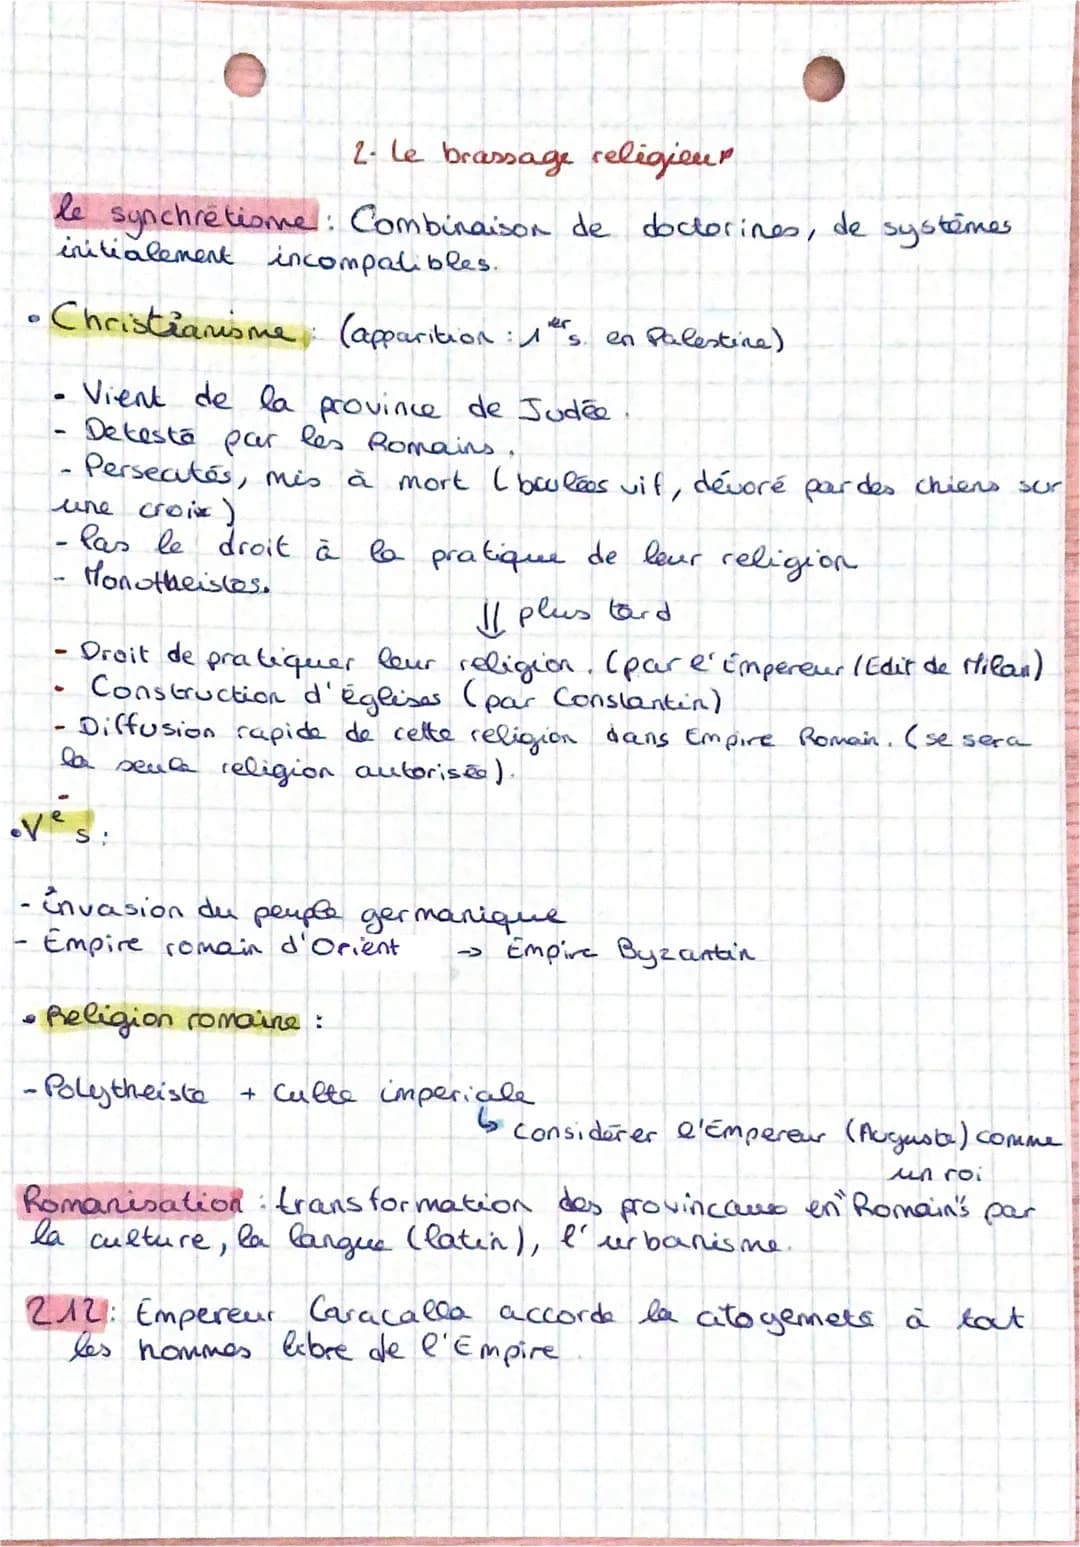 2. Le brassage religieux
le synchrétisme : Combinaison de doctorines, de systèmes
initialement incompatibles.
• Christianisme : (apparition : 1er s. en Palestine)
- Vient de la province de Judée.
- Detesté par les Romains.
- Persecutés, mis à mort (brulées vif, dévoré par des chiens sur
une croix)
- Pas le droit à la pratique de leur religion
- Monotheistes.
⇓ plus tard
- Droit de pratiquer leur religion. (par l'Empereur / Edit de Milan)
- Construction d'églises (par Constantin)
- Diffusion rapide de cette religion dans Empire Romain. (se sera
la seule religion autorisée).
-
• Ve s :
- invasion du peuple germanique
- Empire romain d'Orient → Empire Byzantin
• Religion romaine :
- Polytheiste + Culte imperiale
↳ considérer l'Empereur (Auguste) comme
un roi
Romanisation : transformation des provincaux en "Romain's par
la culture, la langue (latin), l'urbanisme.
212 : Empereur Caracalla accorde la citogennets à tout
les hommes libre de l'Empire